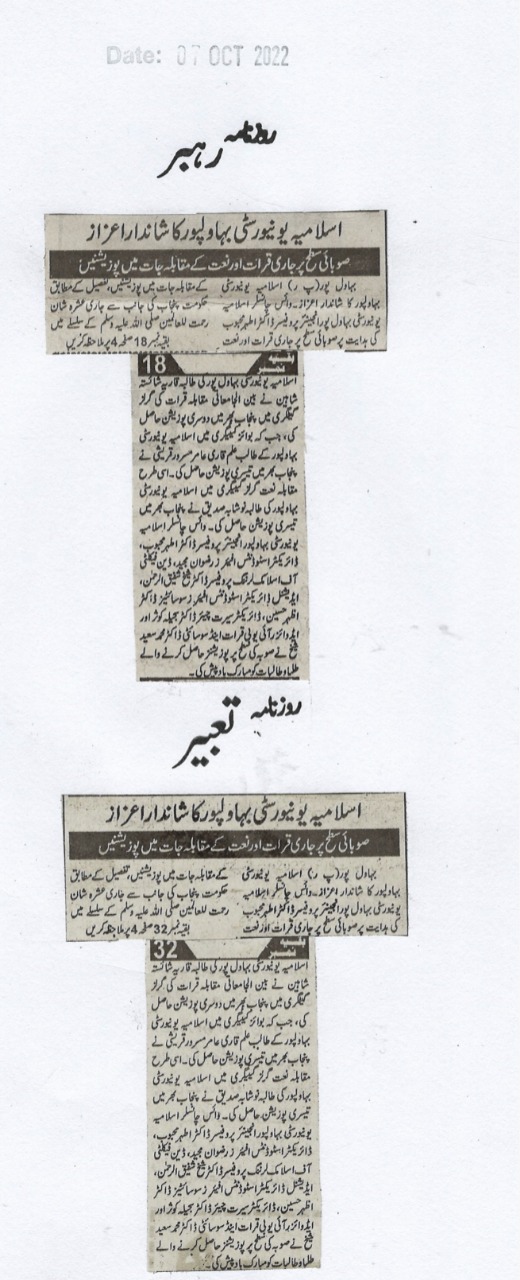 Date: 07 OCT 2022
روزنامہ رہبر
اسلامیہ یونیورسٹی بہاولپور کا شاندار اعزاز
صوبائی سطح پر جاری قرات اور نعت کے مقابلہ جات میں پوزیشنیں
بہاول پور(پ ر) اسلامیہ یونیورسٹی
بہاولپور کا شاندار اعزاز۔وائس چانسلر اسلامیہ
یونیورسٹی بہاول پورانجینئر پروفیسر ڈاکٹر اطہر محبوب
کی ہدایت پر صوبائی سطح پر جاری قرات اور نعت
کے مقابلہ جات میں پوزیشنیں، تفصیل کے مطابق
حکومت پنجاب کی جانب سے جاری عشرہ شان
رحمت للعالمین صلی اللہ علیہ وسلم کے سلسلے میں
بقیہ نمبر 18 صفحہ 4 پر ملاحظہ کریں
بقیہ نمبر 18
اسلامیہ یونیورسٹی بہاول پور کی طالبہ قاریہ شائستہ
شاہین نے بین الجامعاتی مقابلہ قرات کی گرلز
کیٹگری میں پنجاب بھر میں دوسری پوزیشن حاصل
کی، جب کہ بوائز کیٹیگری میں اسلامیہ یونیورسٹی
بہاولپور کے طالب علم قاری عامر مسرور قریشی نے
پنجاب بھر میں تیسری پوزیشن حاصل کی۔ اسی طرح
مقابلہ نعت گرلز کیٹیگری میں اسلامیہ یونیورسٹی
بہاولپور کی طالبہ نوشابہ صدیق نے پنجاب بھر میں
تیسری پوزیشن حاصل کی۔ وائس چانسلر اسلامیہ
یونیورسٹی بہاولپور انجینئر پروفیسر ڈاکٹر اطہر محبوب،
ڈائریکٹر اسٹوڈنٹس افیئرز رضوان مجید، ڈین فیکلٹی
آف اسلامک لرننگ پروفیسر ڈاکٹر شیخ شفیق الرحمٰن،
ایڈیشنل ڈائریکٹر اسٹوڈنٹس افیئرز سوسائٹیز ڈاکٹر
اظہر حسین، ڈائریکٹر سیرت چیئر ڈاکٹر جمیلہ کوثر اور
ایڈوائزر آئی یو بی قرات اینڈ سوسائٹی ڈاکٹر محمد سعید
شیخ نے صوبہ کی سطح پر پوزیشنز حاصل کرنے والے
طلبا و طالبات کو مبارک باد پیش کی۔
روزنامہ تعبیر
اسلامیہ یونیورسٹی بہاولپور کا شاندار اعزاز
صوبائی سطح پر جاری قرات اور نعت کے مقابلہ جات میں پوزیشنیں
بہاول پور(پ ر) اسلامیہ یونیورسٹی
بہاولپور کا شاندار اعزاز۔وائس چانسلر اسلامیہ
یونیورسٹی بہاول پورانجینئر پروفیسر ڈاکٹر اطہر محبوب
کی ہدایت پر صوبائی سطح پر جاری قرات اور نعت
کے مقابلہ جات میں پوزیشنیں، تفصیل کے مطابق
حکومت پنجاب کی جانب سے جاری عشرہ شان
رحمت للعالمین صلی اللہ علیہ وسلم کے سلسلے میں
بقیہ نمبر 32 صفحہ 4 پر ملاحظہ کریں
بقیہ نمبر 32
اسلامیہ یونیورسٹی بہاول پور کی طالبہ قاریہ شائستہ
شاہین نے بین الجامعاتی مقابلہ قرات کی گرلز
کیٹگری میں پنجاب بھر میں دوسری پوزیشن حاصل
کی، جب کہ بوائز کیٹیگری میں اسلامیہ یونیورسٹی
بہاولپور کے طالب علم قاری عامر مسرور قریشی نے
پنجاب بھر میں تیسری پوزیشن حاصل کی۔ اسی طرح
مقابلہ نعت گرلز کیٹیگری میں اسلامیہ یونیورسٹی
بہاولپور کی طالبہ نوشابہ صدیق نے پنجاب بھر میں
تیسری پوزیشن حاصل کی۔ وائس چانسلر اسلامیہ
یونیورسٹی بہاولپور انجینئر پروفیسر ڈاکٹر اطہر محبوب،
ڈائریکٹر اسٹوڈنٹس افیئرز رضوان مجید، ڈین فیکلٹی
آف اسلامک لرننگ پروفیسر ڈاکٹر شیخ شفیق الرحمٰن،
ایڈیشنل ڈائریکٹر اسٹوڈنٹس افیئرز سوسائٹیز ڈاکٹر
اظہر حسین، ڈائریکٹر سیرت چیئر ڈاکٹر جمیلہ کوثر اور
ایڈوائزر آئی یو بی قرات اینڈ سوسائٹی ڈاکٹر محمد سعید
شیخ نے صوبہ کی سطح پر پوزیشنز حاصل کرنے والے
طلبا و طالبات کو مبارک باد پیش کی۔